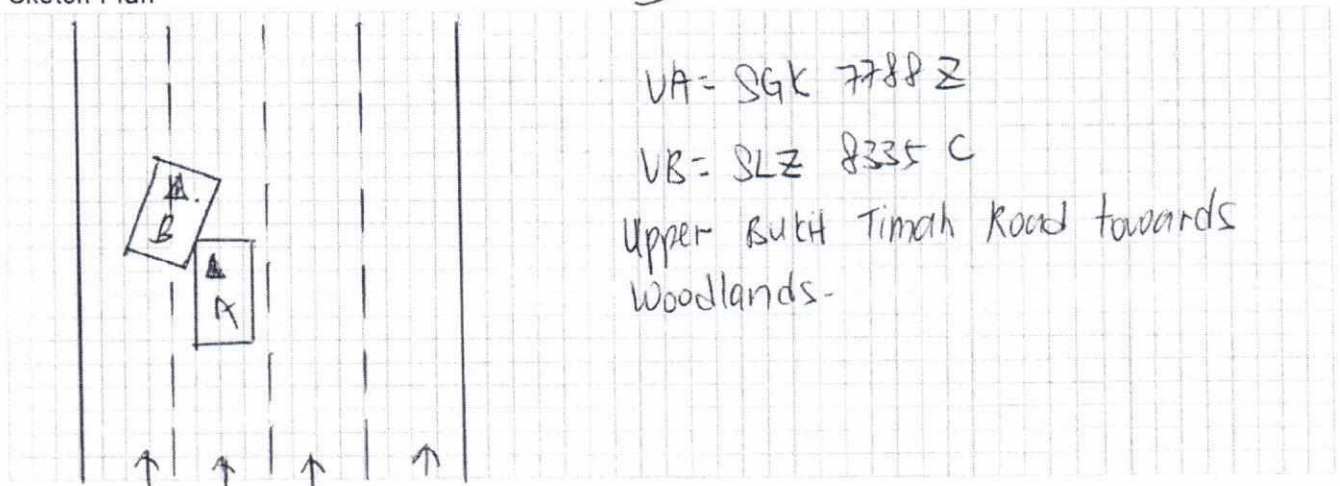 Sketch Plan
VA= SGK 7788 Z
VB= SLZ 8335 C
Upper Bukit Timah Road towards
Woodlands-
B
A